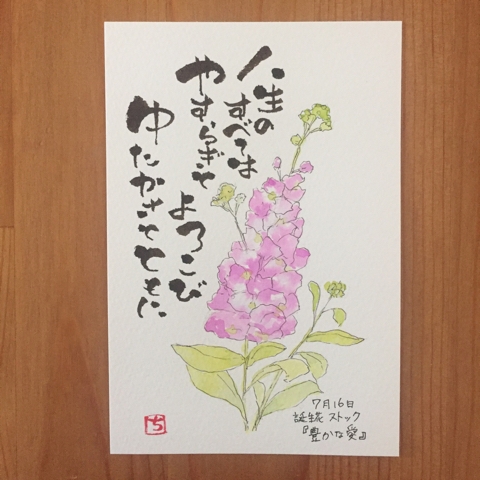 人生の
すべては
やすらぎと
よろこび
ゆたかさとともに
7月16日
誕生花 ストック
『豊かな愛』
ち